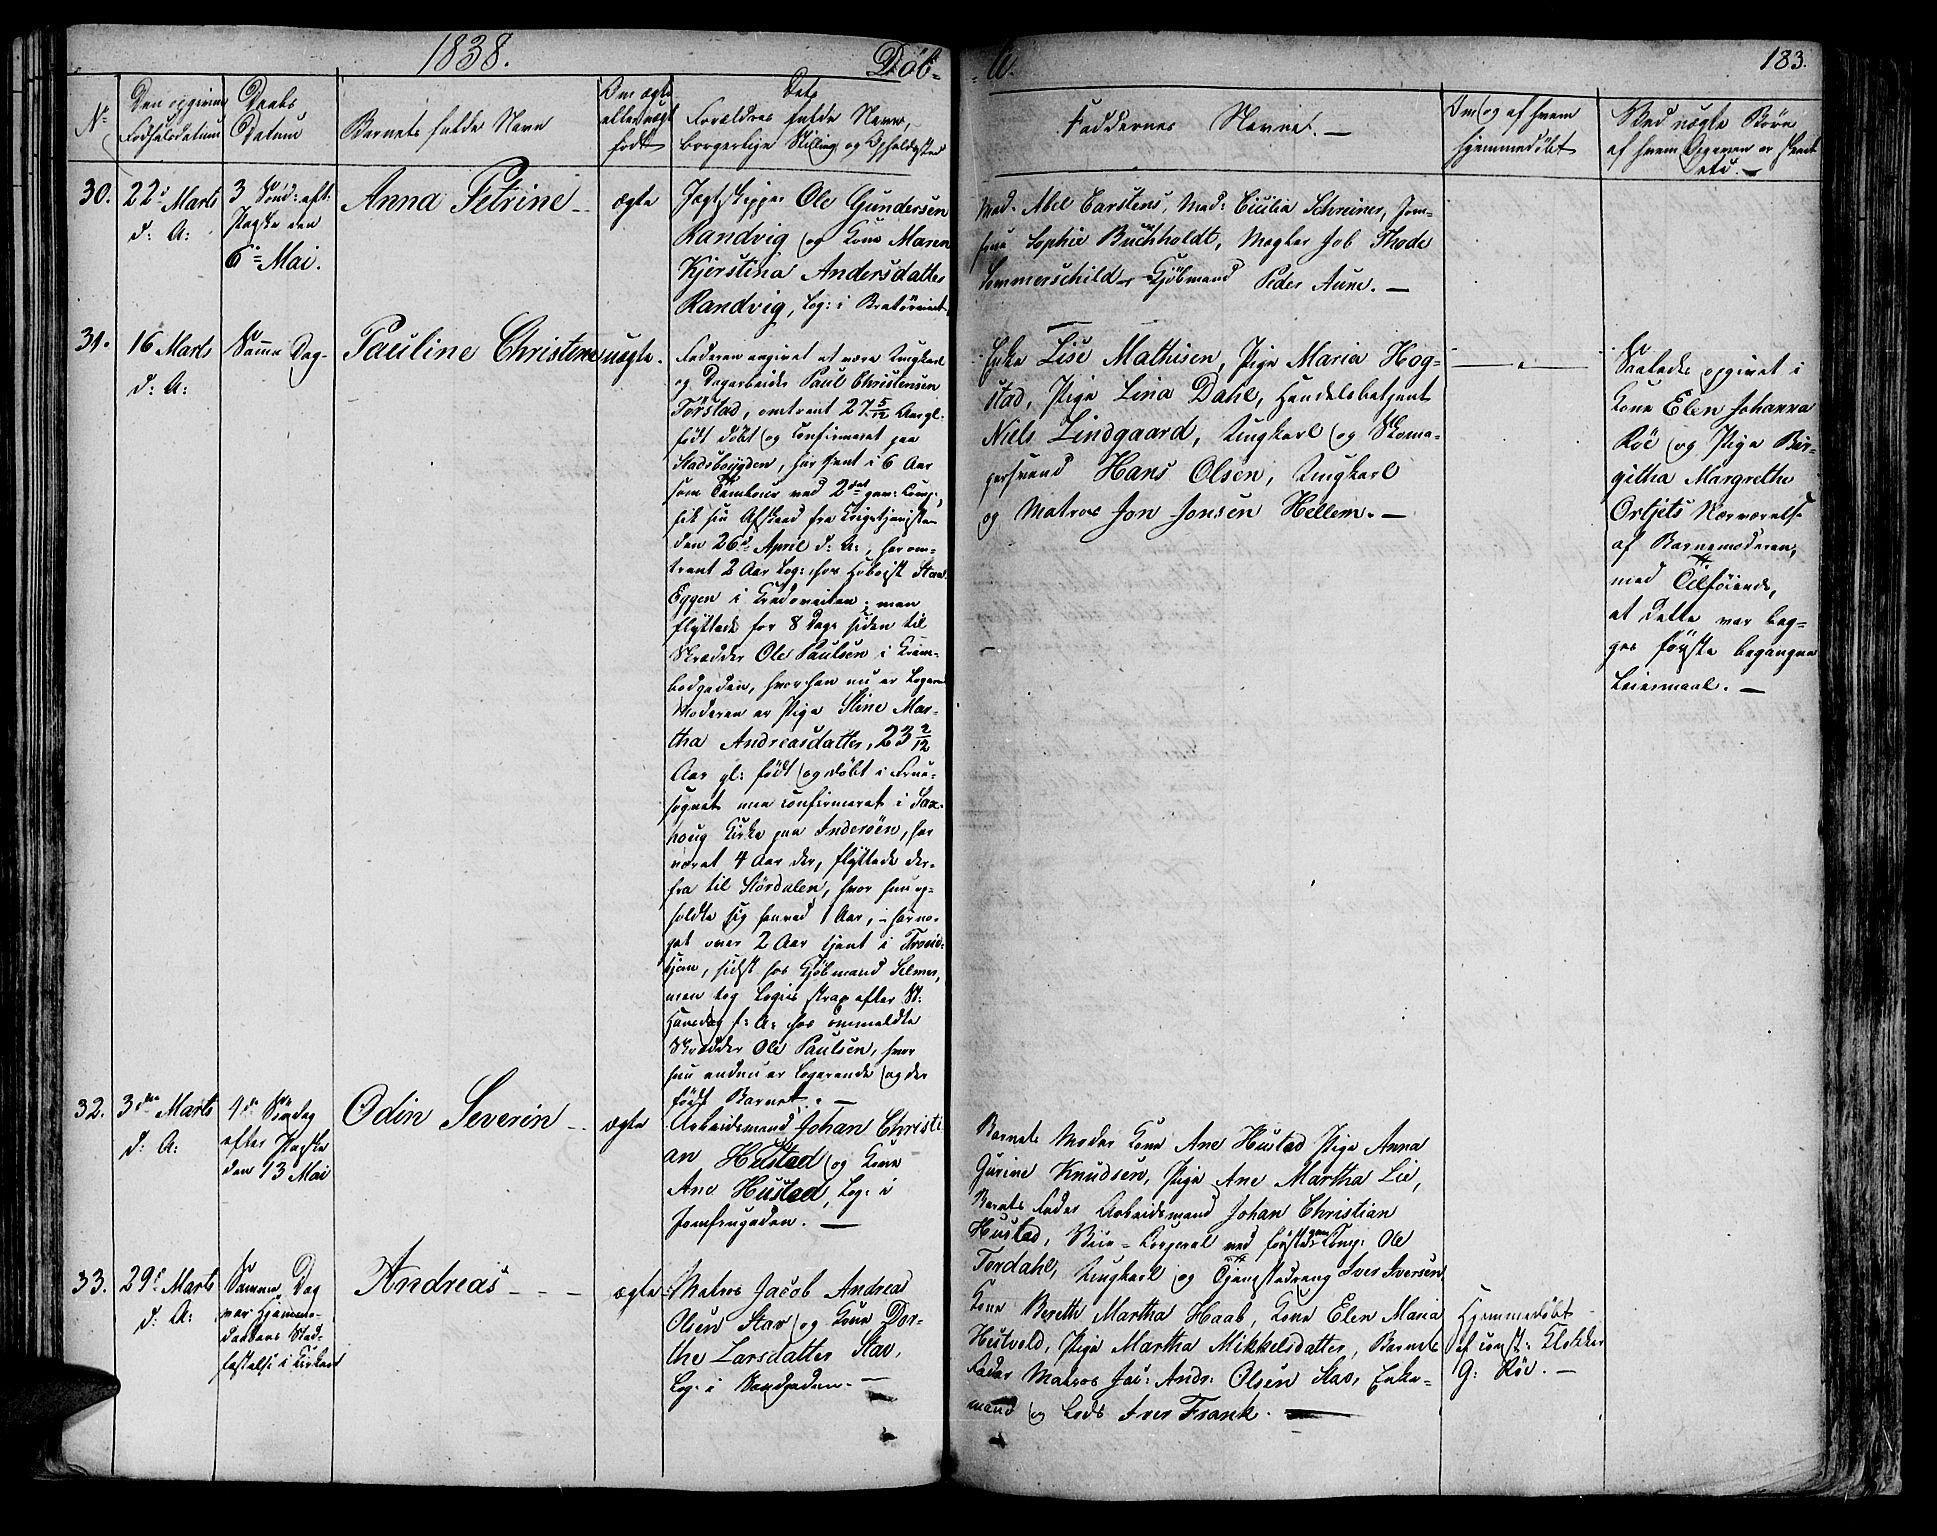 1838.
Døb-
te.
183.
No
Den opgivne
Fødselsdatum
Daabs
Datum
Barnets fulde Navn
Om ægte
eller uægte
født
Dets
Forældres fulde Navne,
borgerlige Stilling og Opholdssted
Faddernes Navne. —
Om og af hvem
hjemmedøbt
Ved uægte Børn
af hvem Opgaven er skeet
30.
22de Marts
d: A:
3 Sønd: eft:
Paaske den
6te Mai.
Anna Petrine
ægte
Jagtskipper Ole Gundersen
Randvig og Kone Maren
Kjerstina Andersdatter
Randvig, Log: i Bratørveit
Mad: Abel Carstens, Mad: Cicilia Schreiner, Jom-
fru Sophie Buchholdt, Mægler Job Thode
Sommerschild, Kjøbmand Peder Aune. —
31.
16 Marts
d: A:
Samme Dag
Pauline Christine
uægte.
Faderen angivet at være Ungkarl
og Dagarbeider Paul Christensen
Tørstad, omtrent 27 5/12 Aar gl:
født døbt og confirmeret paa
Stadsbøygden, har tjent i 6 Aar
som Tambour ved 2det gev: Comp:,
fik sin Afskeed fra Krigstjenisten
den 26de April d: A:, har om-
trent 2 Aar Log: hos Hoboist
Eggen i Credoveiten; men
flyttede for 8 Dage siden til
Skræder Ole Paulsen i Kram-
bodgaden, hvor han nu er Logerende
Moderen er Pige Stine Mar-
tha Andreasdatter, 23 2/12
Aar gl: født og døbt i Frue-
sognet men confirmeret i Sax-
houg Kirke paa Inderøen, har
været 4 Aar der, flyttede der-
fra til Størdalen, hvor hun op-
holdte sig henved 1 Aar, har no-
get over 2 Aar tjent i Trond-
hjem, sidst hos Kjøbmand Selmer,
men tog Logis strax efter St:
Hansdag f: A: hos ommeldte
Skrædder Ole Paulsen, hvor
hun endnu er Logerende og der
født Barnet. —
Enke Lise Mathisen, Pige Maria Hog-
stad, Pige Lina Dahl, Handelsbetjent
Niels Lindgaard, Ungkarl og Skoma-
gersvend Hans Olsen, Ungkarl
og Matros Jon Jonsen Hellem. —
Saaledes opgivet i
Kone Elen Johanna
Röe og Pige Bir-
githa Margrethe
Nærværelse
af Barnemoderen,
med Tilføiende,
at dette var beg-
ges første begangne
Leiermaal. —
32.
3die Marts
d: A:
4de Søndag
efter Paaske
den 13 Mai
Odin Severin
ægte
Arbeidsmand Johan Christi
an Hustad og Kone
Ane Hustad, Log: i
Jomfrugaden. —
Barnets Moder Kone Ane Hustad Pige Anna
Gurine Knudsen, Pige Ane Martha Lie,
Barnets Fader Arbeidsmand Johan Christian
Hustad, Vice-Corporal ved første gev: Comp: Ole
Tordahl, Ungkarl og Tjenestedreng Iver Iversen
33.
29de Marts
d: A:
Samme Dag
var Hjemme-
daabens Stad-
festelse i Kirken
Andreas
ægte
Matros Jacob Andreas
Olsen Stav og Kone Dor-
the Larsdatter Stav,
Log: i Sandgaden. —
Kone Berethe Martha Haab, Kone Elen Maria
Hustveld, Pige Martha Mikkelsdatter, Barnets
Fader Matros Jac: Andr: Olsen Stav, Enke-
mand og Lods Iver Frank. —
Hjemmedøbt
af const: Klokker
G: Röe. —